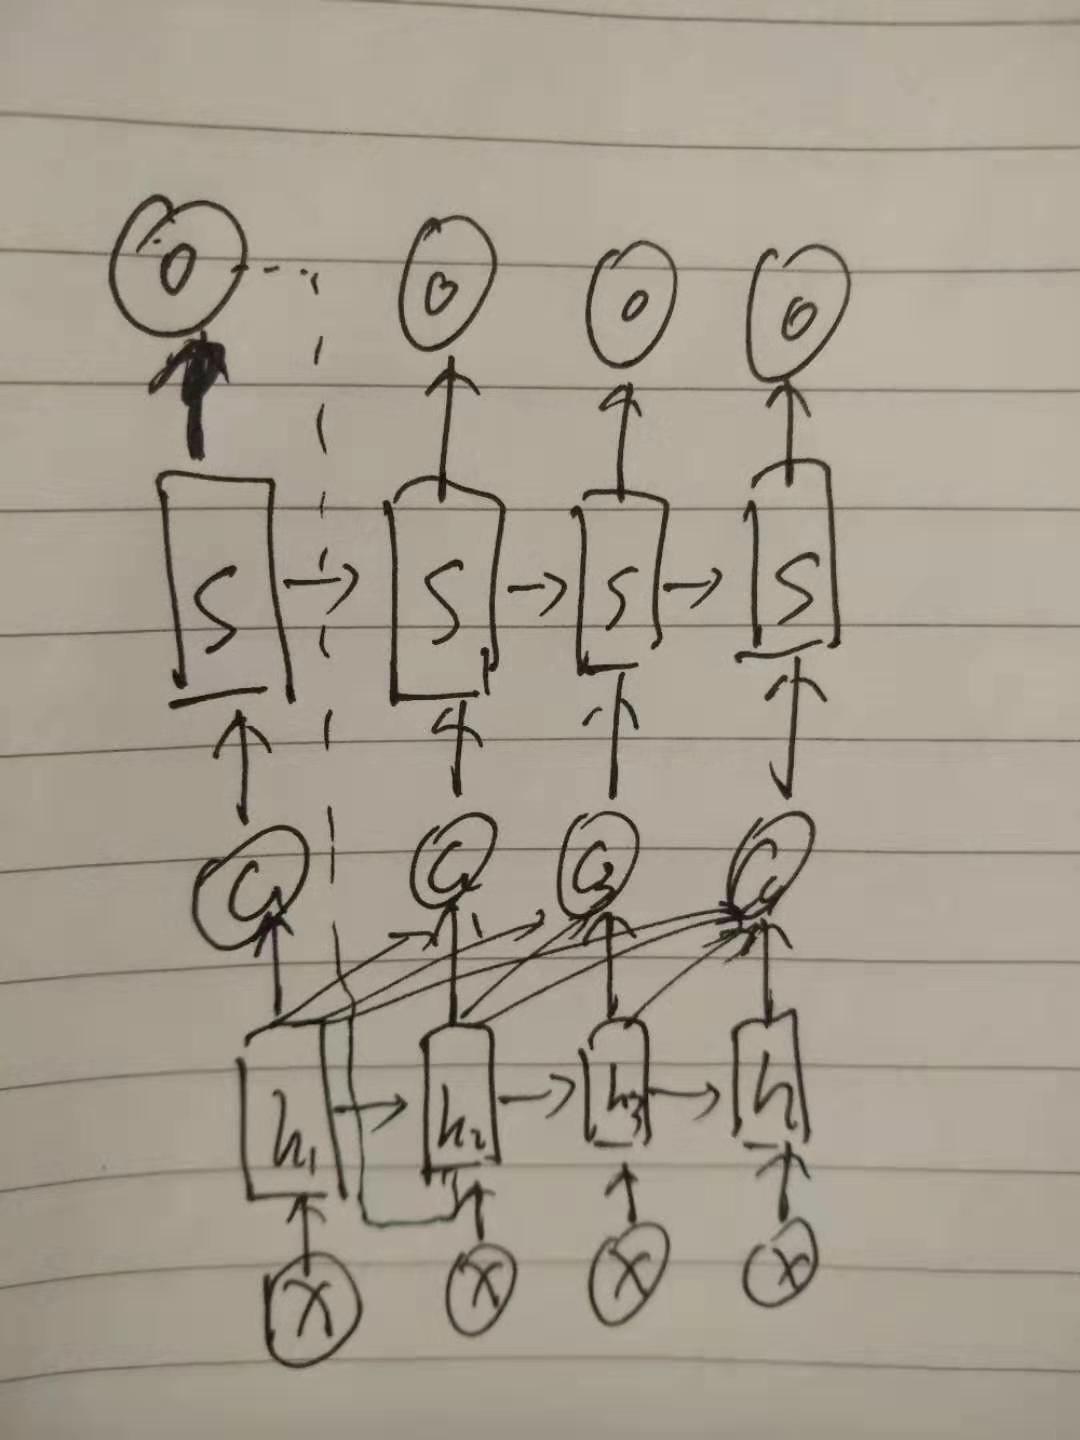 O O O O
S S S S
C₁ C C₃ C
h₁ h₂ h₃ h
X X X X